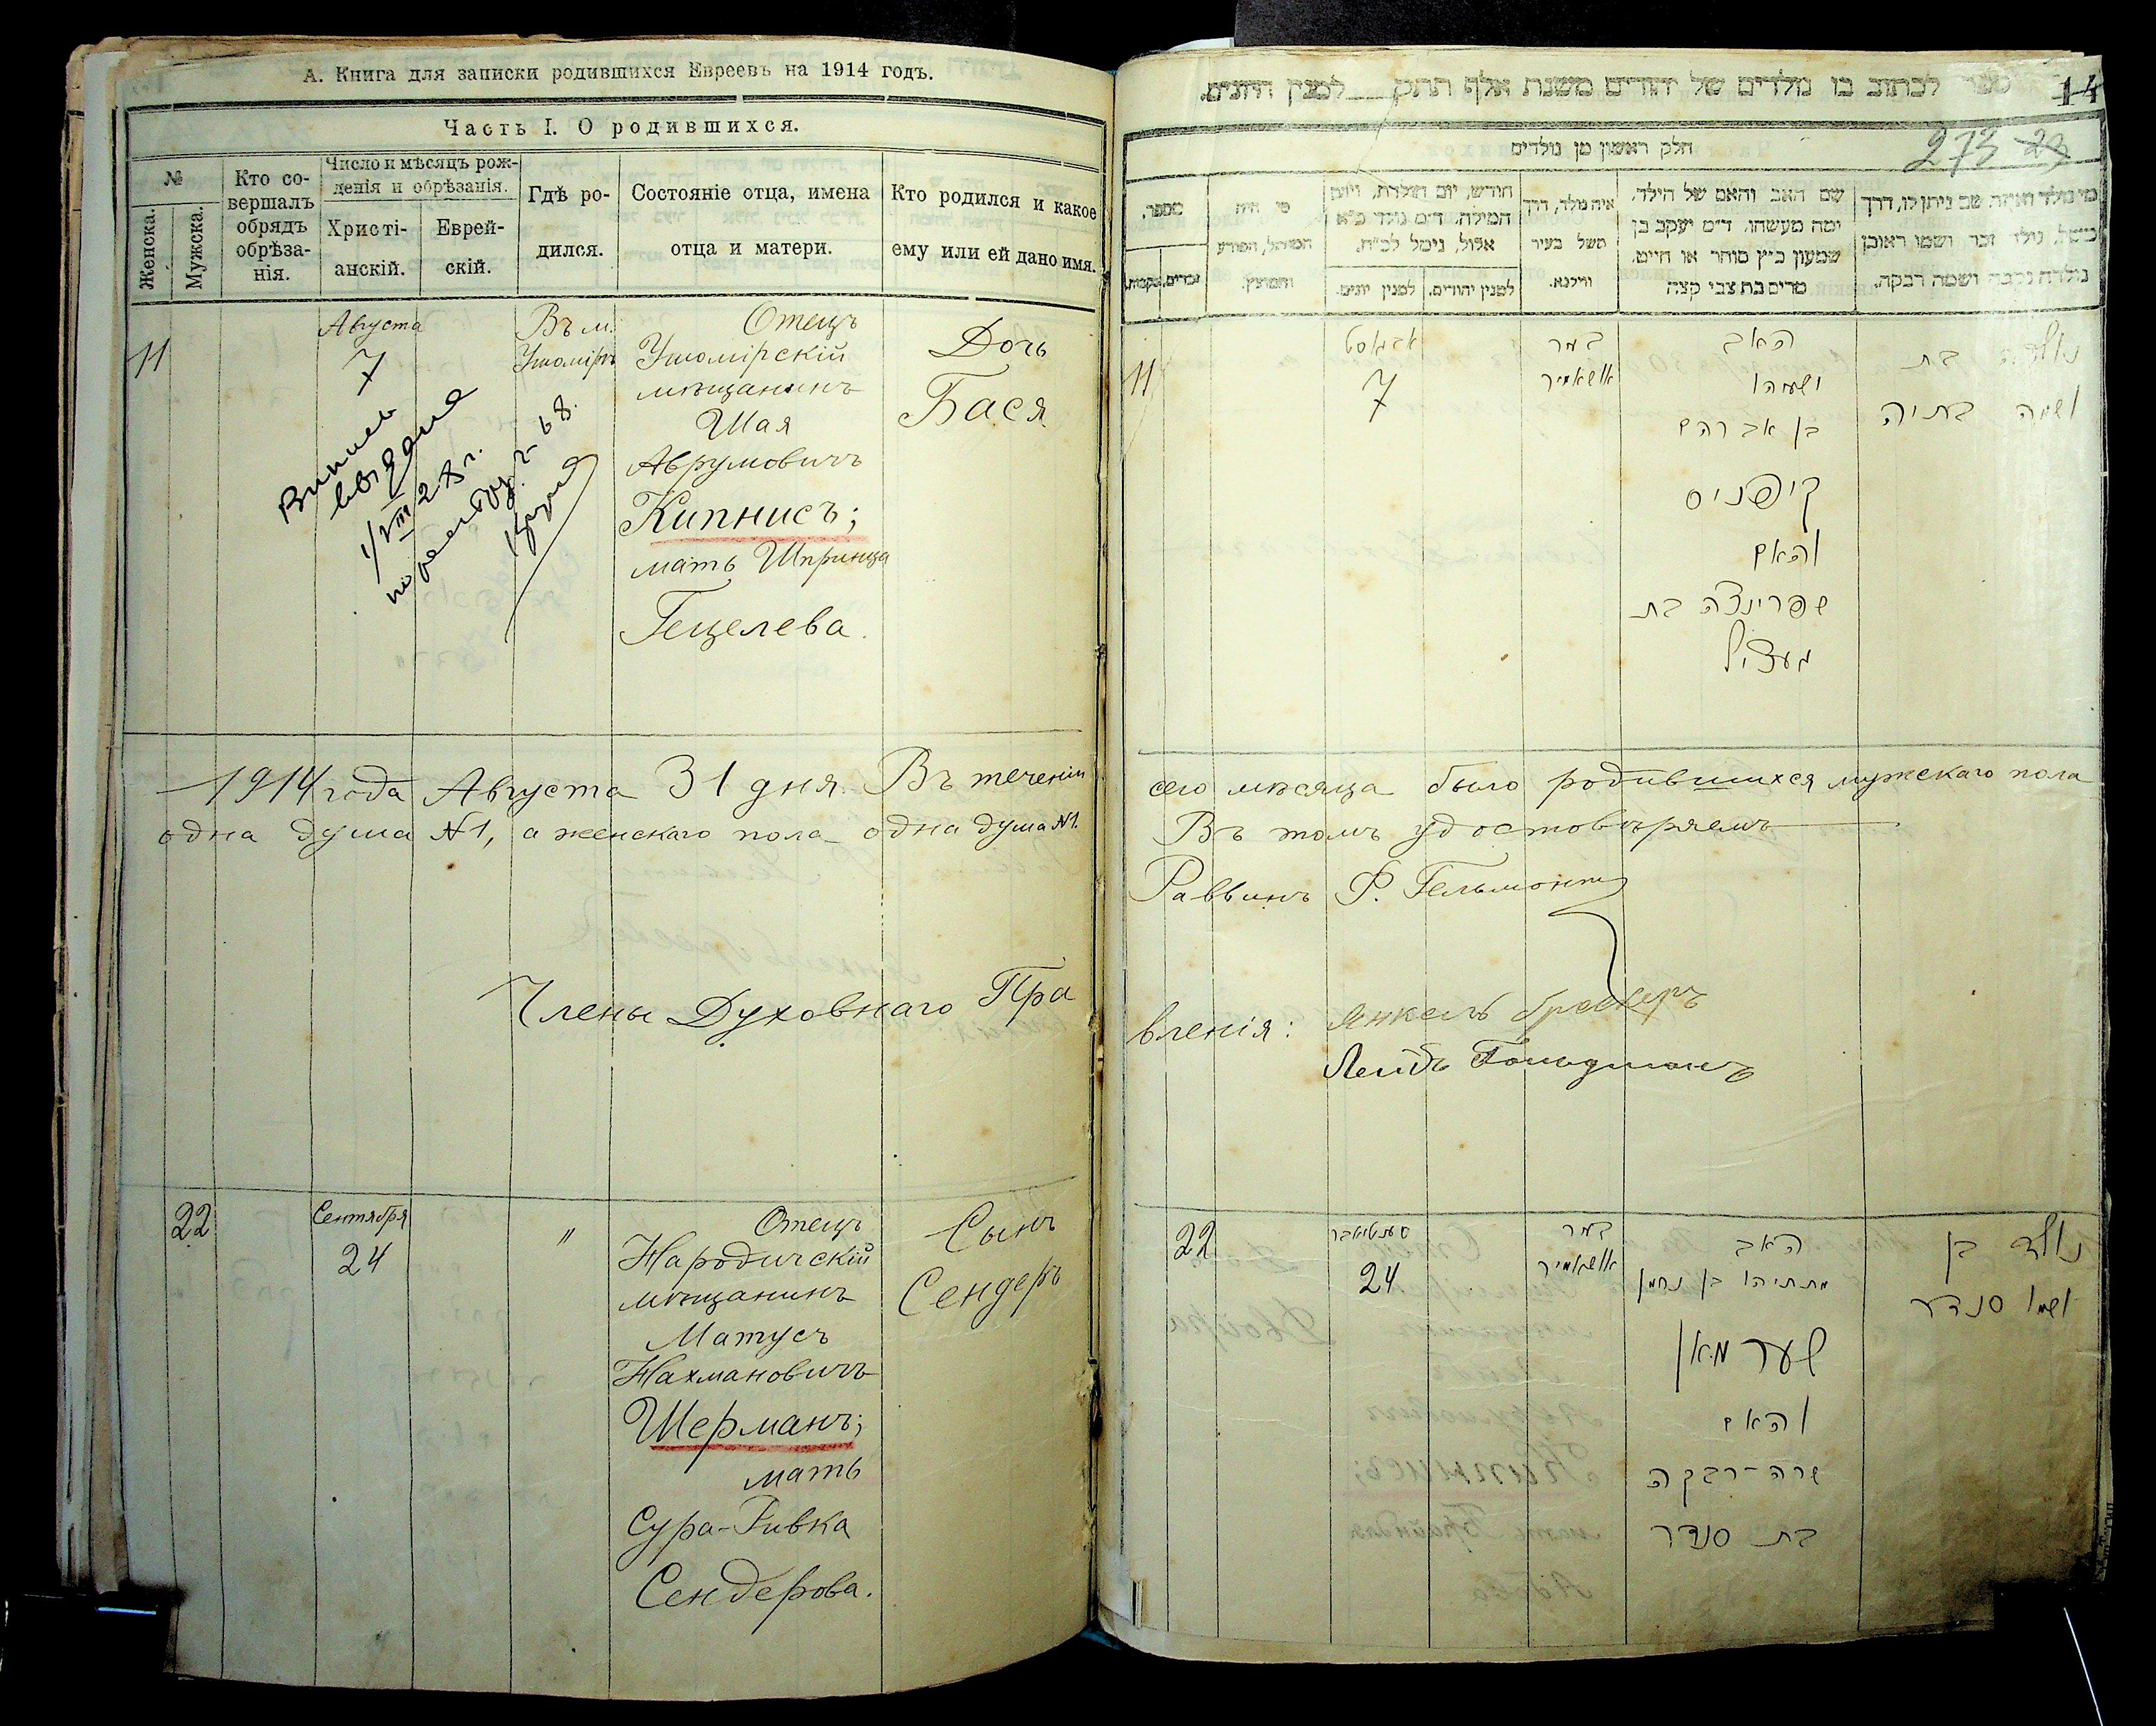 А. Книга для записки родившихся Евреевъ на 1914 годъ.
Часть I. О родившихся.
№
Женска.
Мужска.
Кто со-
вершалъ
обрядъ
обрѣза-
нія.
Число и мѣсяцъ рож-
денія и обрѣзанія.
Христі-
анскій.
Еврей-
скій.
Гдѣ ро-
дился.
Состояніе отца, имена
отца и матери.
Кто родился и какое
ему или ей дано имя.
11
Августа
7
Въ м.
Ушомірѣ
Отецъ
Ушомірскій
мѣщанинъ
Шая
Аврумовичъ
Кипнисъ;
мать Шпринца
Гецелева.
Дочь
Бася
1/VIII 28 г.
1914 года Августа 31 дня. Въ теченіи
одна душа №1, а женскаго пола одна душа №1.
Члены Духовнаго Пра
22
Сентября
24
"
Отецъ
Народичскій
мѣщанинъ
Матусъ
Нахмановичъ
Шерманъ;
мать
Сура-Ривка
Сендерова.
Сынъ
Сендеръ
ספר לכתוב בו נולדים של יהודים משנת אלף תתק לסנין היונים.
14
273 23
חלק ראשון מן נולדים
מספר.
זכרים.
נקבות.
מי היה
המוהל, הפורע
והמוצץ.
חודש, יום הולדת, ויום
המילה. ד״מ נולד כ״א
אלול, נימל לכ״ח.
למנין יונים.
למנין יהודים.
איה נולד, דרך
משל בעיר
ווילנא.
שם האב והאם של הילד.
ומה מעשהו. ד״מ יעקב בן
שמעון כ״ץ סוחר או חייט.
מרים בת צבי קצה
מי נולד ואיזה שם ניתן לו, דרך
משל, נולד זכר ושמו ראובן
נולדה נקבה ושמה רבקה.
11
אבגוסט
7
במר
אושאמיר
האב
ישעיהו
בן אברהם
קיפניס
והאם
שפרינצה בת
געציל
נולדה בת
ושמה בתיה
сего мѣсяца было родившихся мужскаго пола
Въ томъ удостовѣряемъ
Раввинъ Ф. Гельмонтъ
вленія: Янкель
Лейбъ Гольдманъ
22
סעפטיאבר
24
במר
אושאמיר
האב
מתתיהו בן נחמן
שערמאן
והאם
שרה-רבקה
בת סנדר
נולד בן
ושמו סנדר